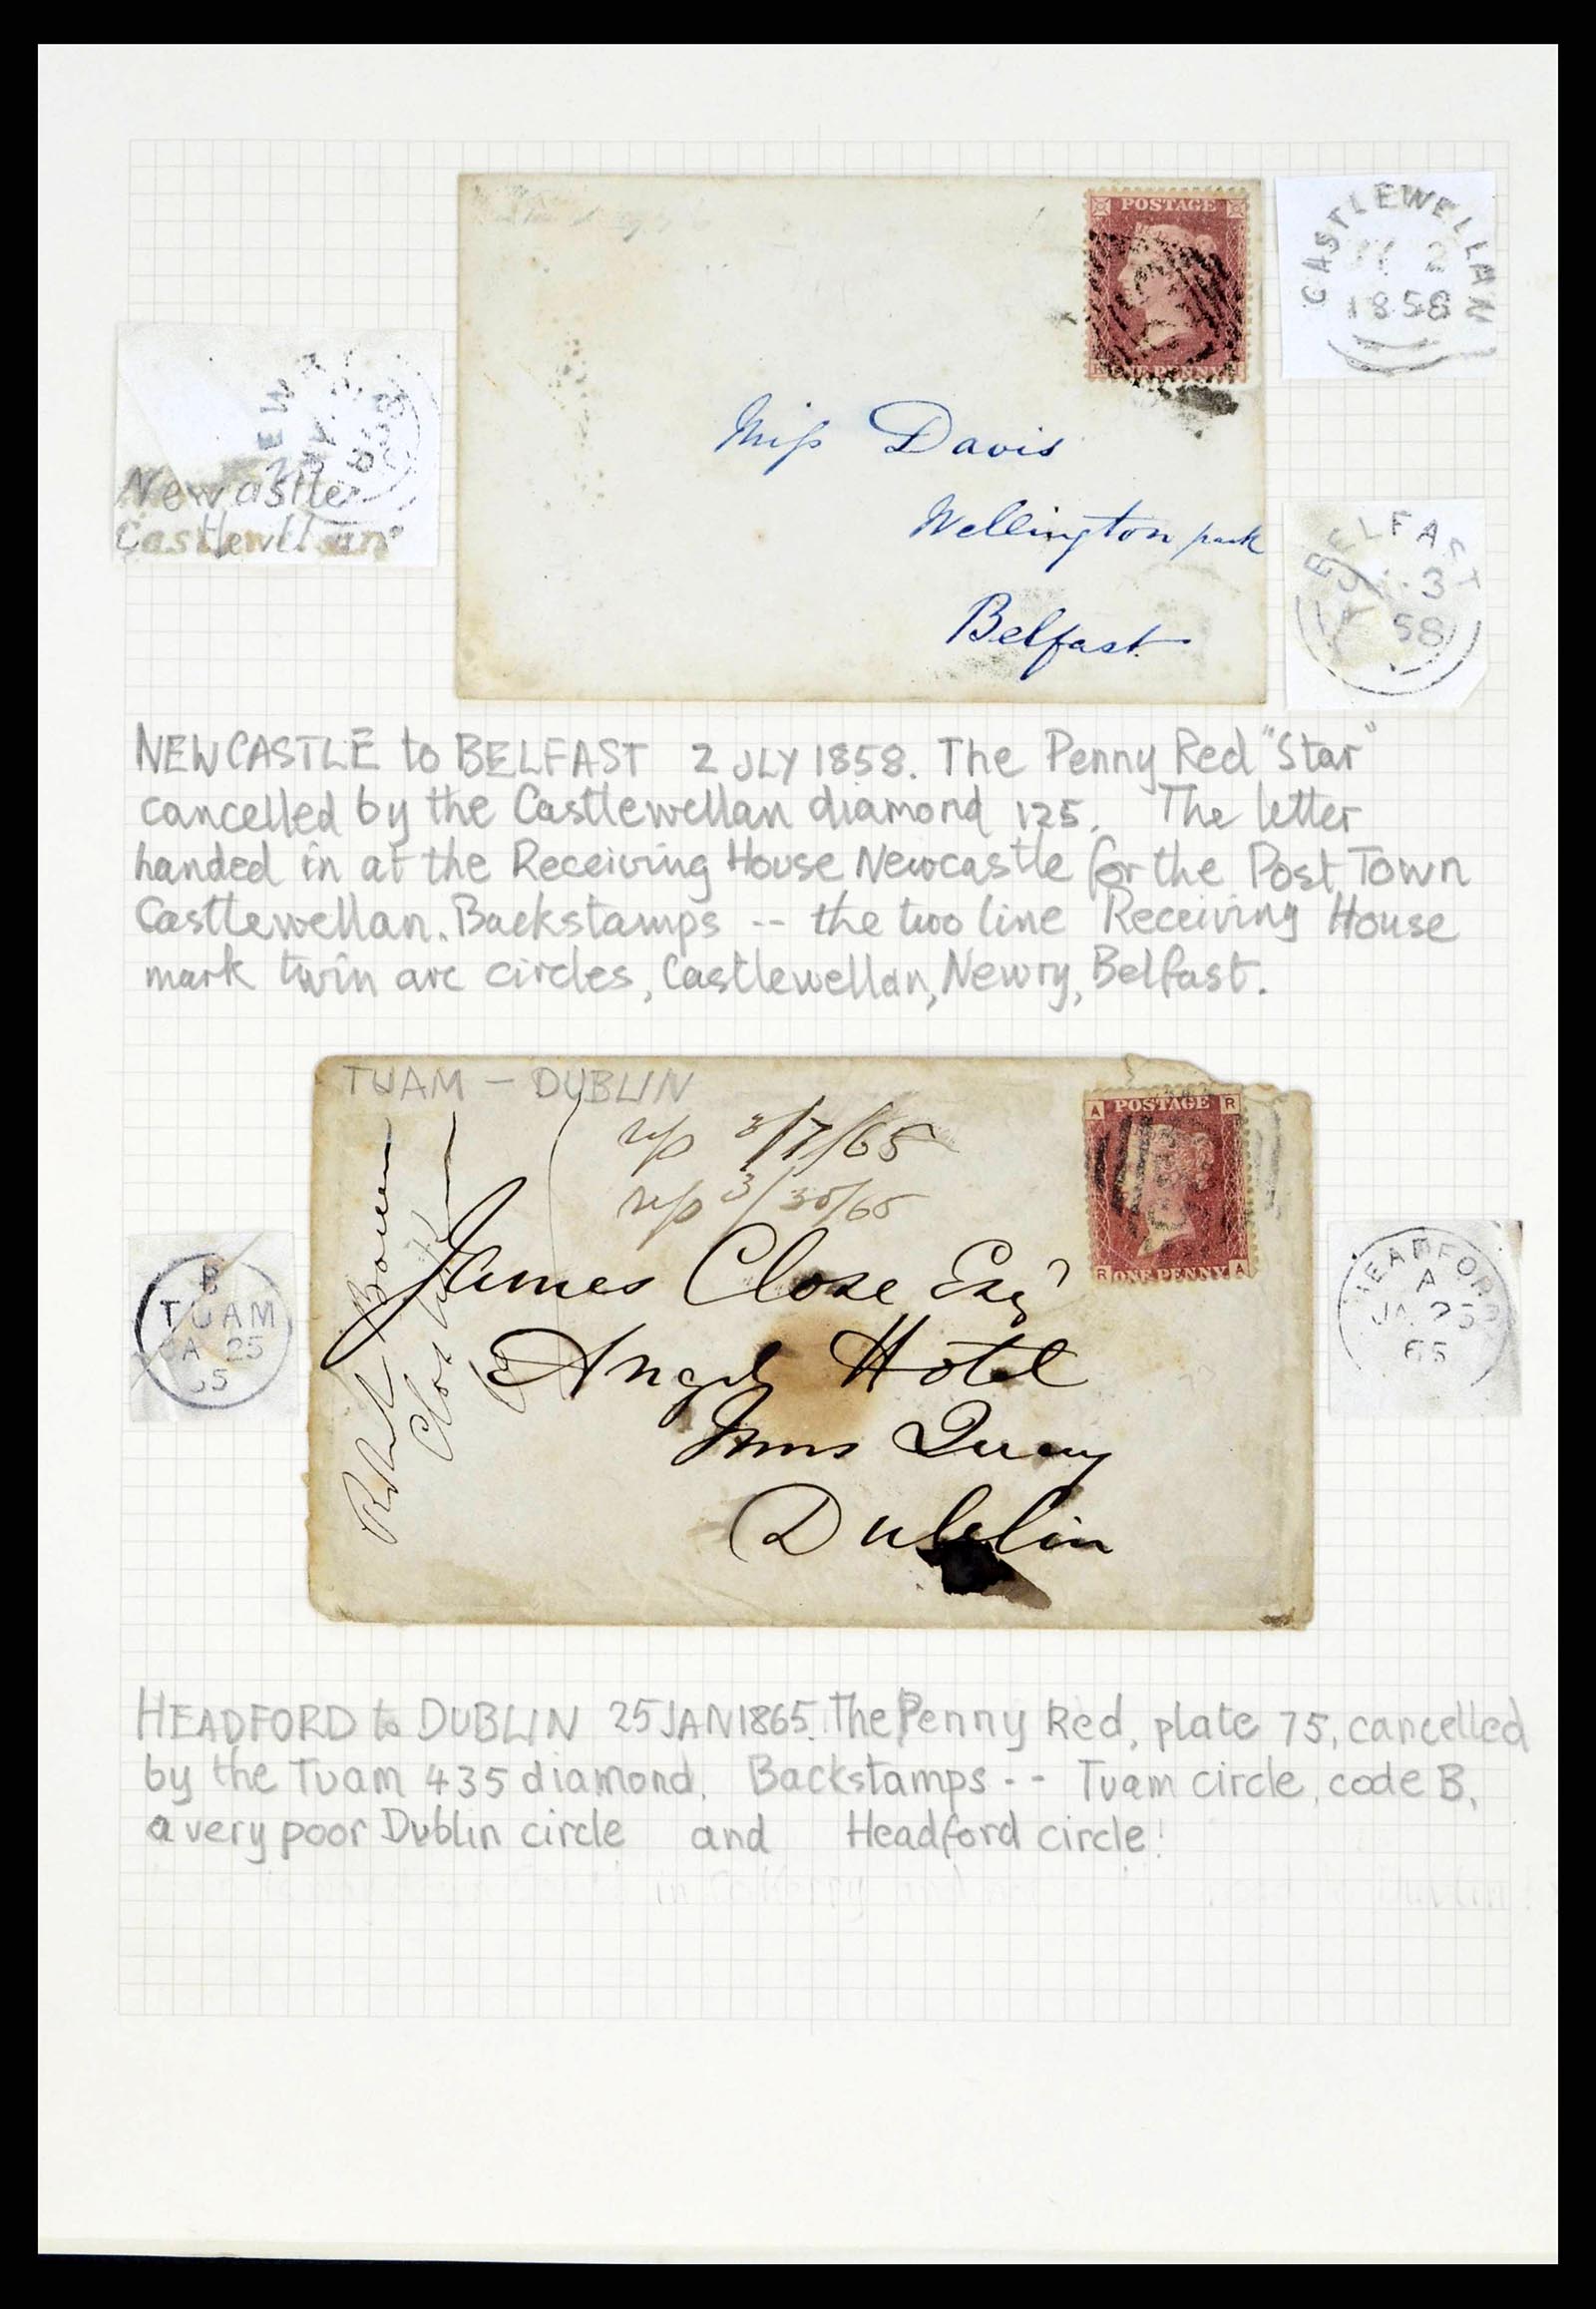 POSTAGE
ONE PENNY
CASTLEWELLAN
JY 2
1858
NEW
1858
Newcastle
Castlewillian
Miss Davis
Wellington park
Belfast
BELFAST
3
58
NEWCASTLE to BELFAST 2 JLY 1858. The Penny Red "Star"
cancelled by the Castlewellan diamond 125. The letter
handed in at the Receiving House Newcastle for the Post Town
Castlewellan. Backstamps -- the two line Receiving House
mark twin arc circles, Castlewellan, Newry, Belfast.
TUAM - DUBLIN
3/7/65
3/30/65
A POSTAGE R
R ONE PENNY A
James Close Esqr
Angel Hotel
Inns Quay
Dublin
B
TUAM
JA 25
65
HEADFORD
A
JA 25
65
HEADFORD to DUBLIN 25 JAN 1865. The Penny Red, plate 75, cancelled
by the Tuam 435 diamond. Backstamps -- Tuam circle, code B,
a very poor Dublin circle and Headford circle!